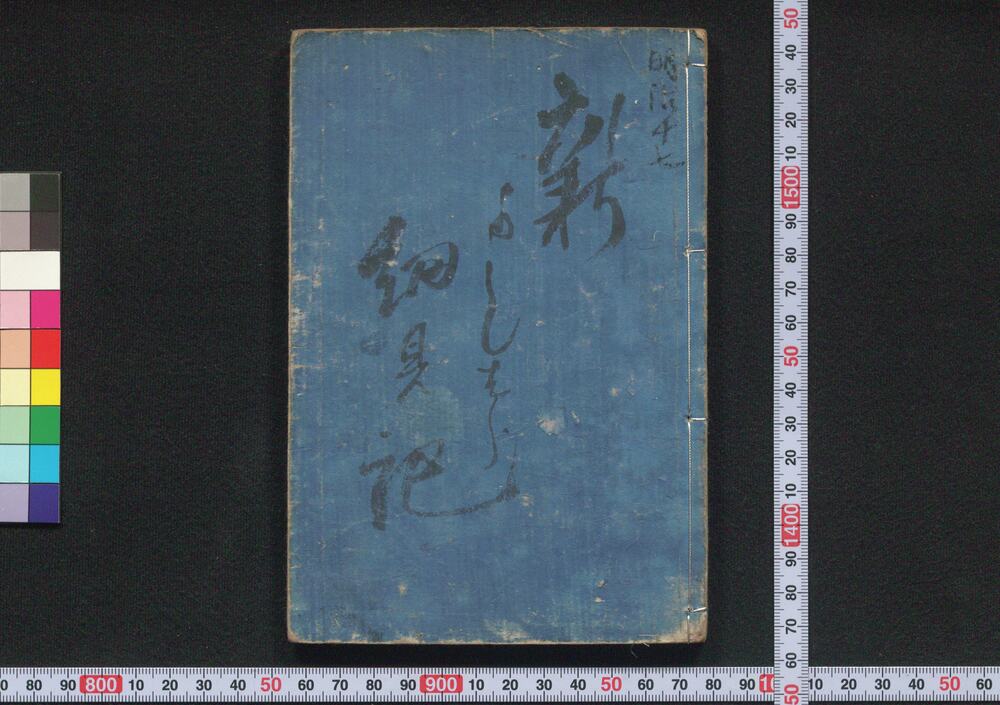 明治十七
新
よしはら
細見記
50 40 30 20 10 1500 90 80 70 60 50 40 30 20 10 1400 90 80 70 60 50
80 90 800 10 20 30 40 50 60 70 80 90 900 10 20 30 40 50 60 70 80 90 10 20 30 40 50 60